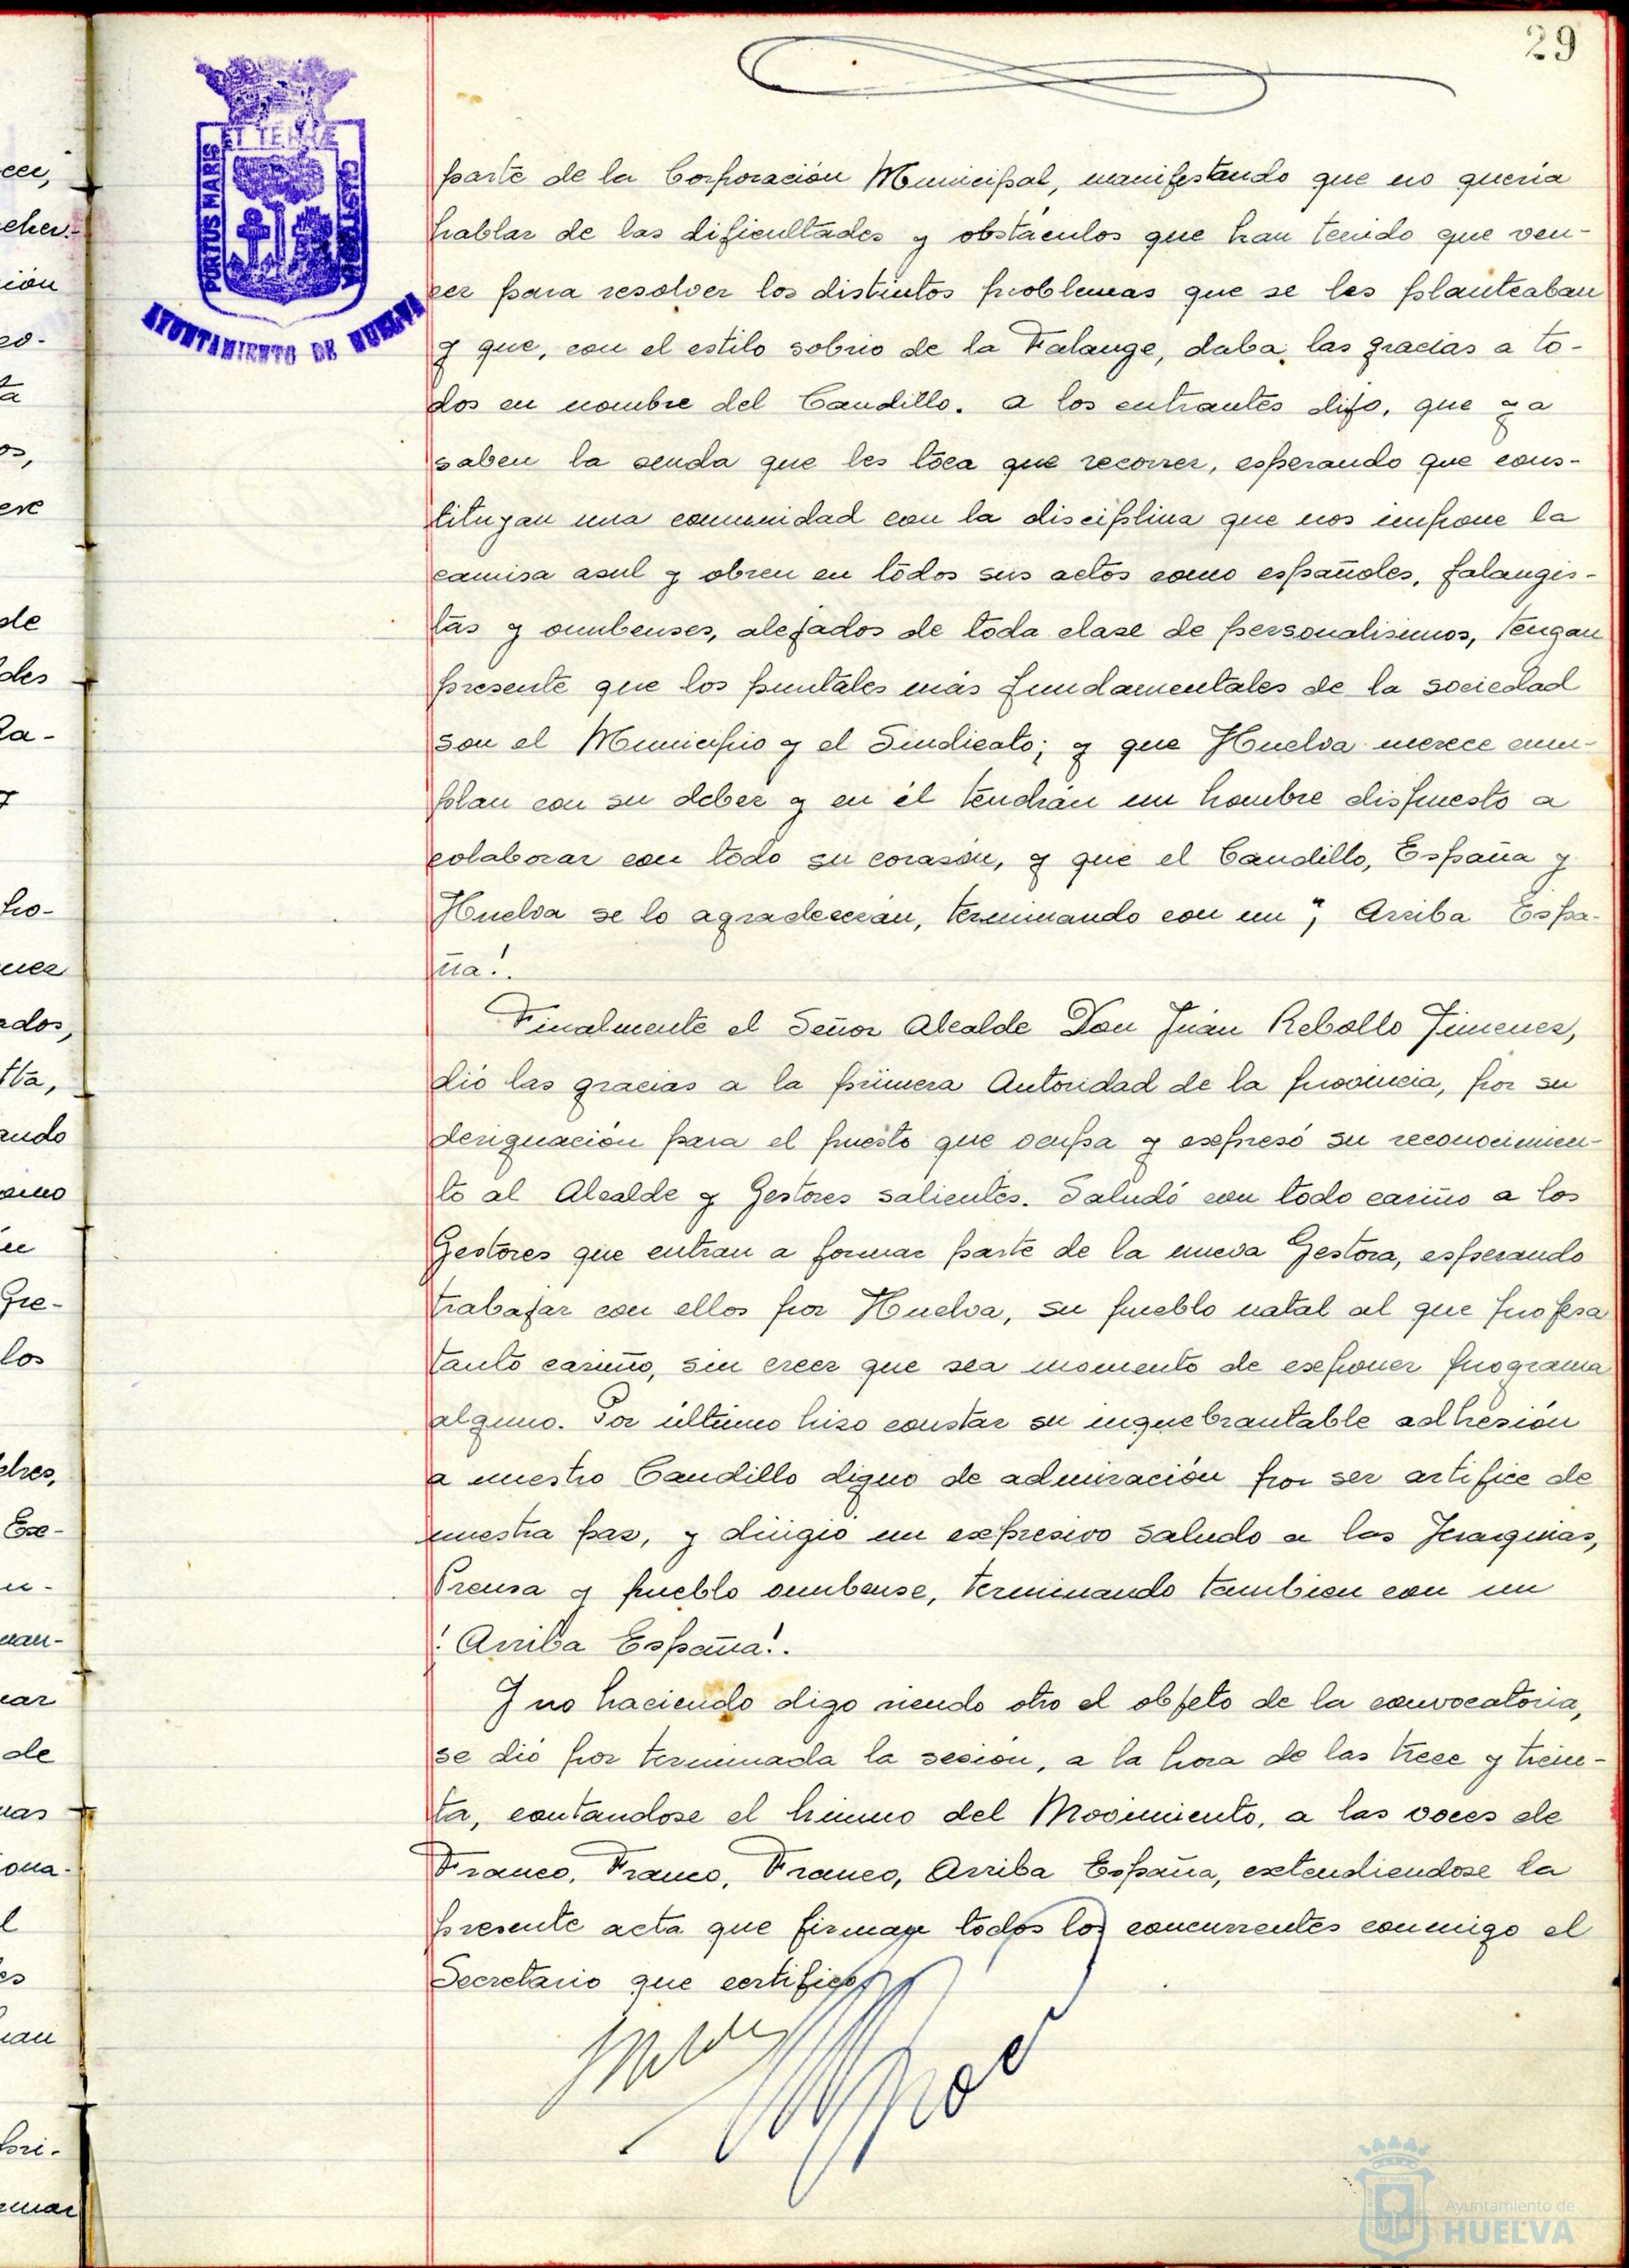 29
PORTUS MARIS
ET TERRÆ
CUSTODIA
AYUNTAMIENTO DE HUELVA
parte de la Corporación Municipal, manifestando que no quería
hablar de las dificultades y obstáculos que han tenido que ven-
cer para resolver los distintos problemas que se les planteaban
y que, con el estilo sobrio de la Falange, daba las gracias a to-
dos en nombre del Caudillo. a los entrantes dijo, que ya
saben la senda que les toca que recorrer, esperando que cons-
tituyan una comunidad con la disciplina que nos impone la
camisa asul y obren en todos sus actos como españoles, falangis-
tas y onubenses, alejados de toda clase de personalismos, tengan
presente que los puntales más fundamentales de la sociedad
son el Municipio y el Sindicato; y que Huelva merece cum-
plan con su deber y en él tendrán un hombre dispuesto a
colaborar con todo su corasón, y que el Caudillo, España y
Huelva se lo agradecerán, terminando con un "¡ Arriba Espa-
ña!.
Finalmente el Señor Alcalde Don Juán Rebollo Jimenez,
dió las gracias a la primera Autoridad de la provincia, por su
designación para el puesto que ocupa y expresó su reconocimien-
to al Alcalde y Gestores salientes. Saludó con todo cariño a los
Gestores que entran a formar parte de la nueva Gestora, esperando
trabajar con ellos por Huelva, su pueblo natal al que profesa
tanto cariño, sin creer que sea momento de exponer programa
alguno. Por último hizo constar su inquebrantable adhesión
a nuestro Caudillo digno de admiración por ser artifice de
nuestra paz, y dirigió un expresivo saludo a las Jerarquias,
Prensa y pueblo onubense, terminando tambien con un
! Arriba España!.
Y no haciendo digo siendo otro el objeto de la convocatoria,
se dió por terminada la sesión, a la hora de las trece y trein-
ta, cantandose el himno del Movimiento, a las voces de
Franco, Franco, Franco, Arriba España, extendiendose la
presente acta que firman todos los concurrentes conmigo el
Secretario que certifico
Ayuntamiento de
HUELVA